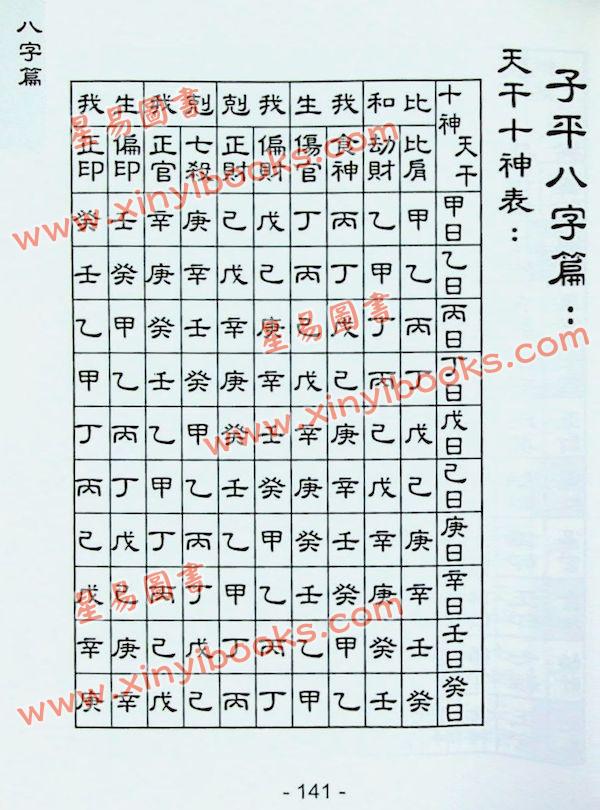 子平八字篇：
天干十神表：
十神 天干 比 和 我 生 我 剋 剋 我 生 我
比肩 劫財 食神 傷官 偏財 正財 七殺 正官 偏印 正印
甲日 甲 乙 丙 丁 戊 己 庚 辛 壬 癸
乙日 乙 甲 丁 丙 己 戊 辛 庚 癸 壬
丙日 丙 丁 戊 己 庚 辛 壬 癸 甲 乙
丁日 丁 丙 己 戊 辛 庚 癸 壬 乙 甲
戊日 戊 己 庚 辛 壬 癸 甲 乙 丙 丁
己日 己 戊 辛 庚 癸 壬 乙 甲 丁 丙
庚日 庚 辛 壬 癸 甲 乙 丙 丁 戊 己
辛日 辛 庚 癸 壬 乙 甲 丁 丙 己 戊
壬日 壬 癸 甲 乙 丙 丁 戊 己 庚 辛
癸日 癸 壬 乙 甲 丁 丙 己 戊 辛 庚
八字篇
- 141 -
星易圖書
www.xinyibooks.com
星易圖書
www.xinyibooks.com
星易圖書
www.xinyibooks.com